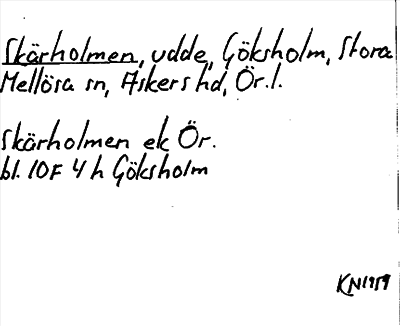 Skärholmen, udde, Göksholm, Stora
Mellösa sn, Askers hd, Ör.l.
Skärholmen ek Ör.
bl. 10F 4h Göksholm
KN1959